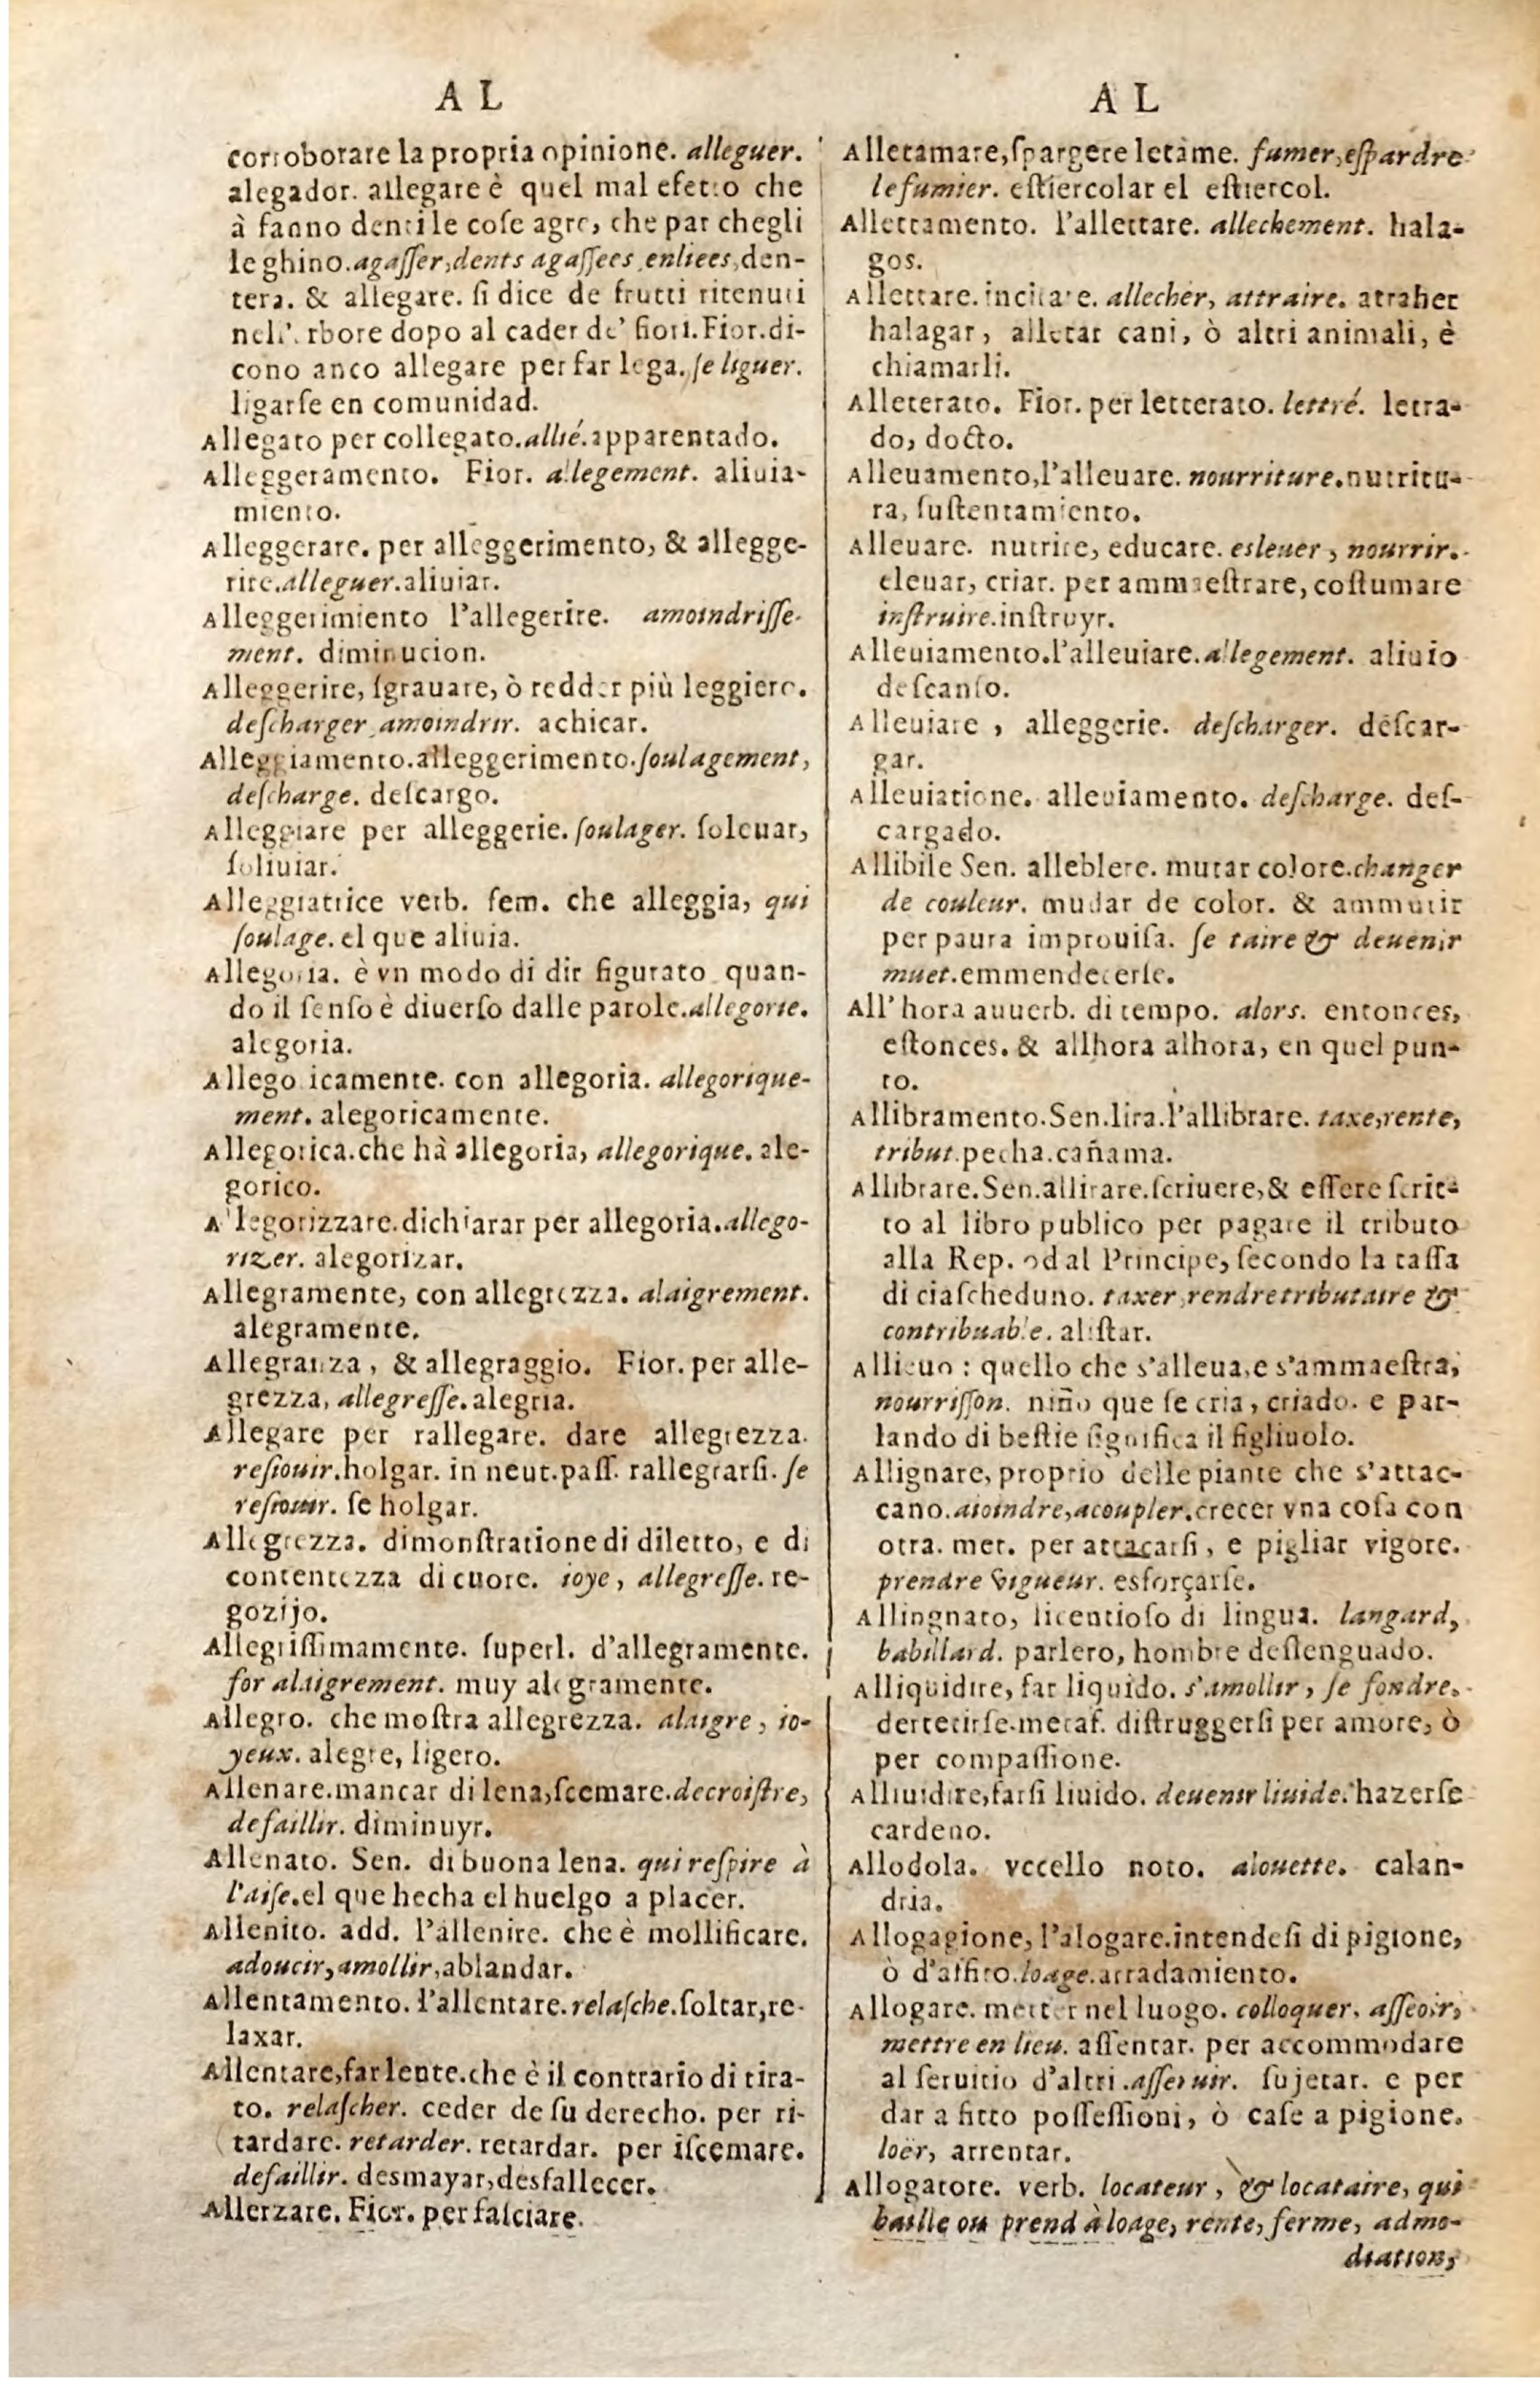 A L
corroborare la propria opinione. alleguer.
alegador. allegare è quel mal efetto che
à fanno denti le coſe agre, che par chegli
leghino. agaſſer, dents agaſſees, enliees, den-
tera. & allegare. ſi dice de frutti ritenuti
nell' rbore dopo al cader de' fiori. Fior. di-
cono anco allegare per far lega. ſe liguer.
ligarſe en comunidad.
Allegato per collegato. allié. apparentado.
Alleggeramento. Fior. allegement. aliuia-
miento.
Alleggerare. per alleggerimento, & allegge-
rire. alleguer. aliuiar.
Alleggerimiento l'allegerire. amoindriſſe-
ment. diminucion.
Alleggerire, ſgrauare, ò redder più leggiero.
deſcharger, amoindrir. achicar.
Alleggiamento. alleggerimento. ſoulagement,
deſcharge. deſcargo.
Alleggiare per alleggerie. ſoulager. ſoleuar,
ſoliuiar.
Alleggiatrice verb. fem. che alleggia, qui
ſoulage. el que aliuia.
Allegoria. è vn modo di dir figurato quan-
do il ſenſo è diuerſo dalle parole. allegorie.
alegoria.
Allego icamente. con allegoria. allegorique-
ment. alegoricamente.
Allegorica. che hà allegoria, allegorique. ale-
gorico.
A legorizzare. dichiarar per allegoria. allego-
rizer. alegorizar.
Allegramente, con allegrezza. alaigrement.
alegramente.
Allegranza, & allegraggio. Fior. per alle-
grezza, allegreſſe. alegria.
Allegare per rallegare. dare allegrezza.
reſiouir. holgar. in neut. paſſ. rallegrarſi. ſe
reſiouir. ſe holgar.
Allegrezza. dimonſtratione di diletto, e di
contentezza di cuore. ioye, allegreſſe. re-
gozijo.
Allegriſſimamente. ſuperl. d'allegramente.
for alaigrement. muy alegramente.
Allegro. che moſtra allegrezza. alaigre, io-
yeux. alegre, ligero.
Allenare. mancar di lena, ſcemare. decroiſtre,
defaillir. diminuyr.
Allenato. Sen. di buona lena. qui reſpire à
l'aiſe. el que hecha el huelgo a placer.
Allenito. add. l'allenire. che è mollificare.
adoucir, amollir, ablandar.
Allentamento. l'allentare. relaſche. ſoltar, re-
laxar.
Allentare, far lente. che è il contrario di tira-
to. relaſcher. ceder de ſu derecho. per ri-
tardare. retarder. retardar. per iſcemare.
defaillir. desmayar, desfallecer.
Allerzare. Fior. per faſciare.
A L
Alletamare, ſpargere letame. fumer, eſpardre
le fumier. eſtiercolar el eſtiercol.
Allettamento. l'allettare. allechement. hala-
gos.
Allettare. incitare. allecher, attraire. atraher
halagar, alletar cani, ò altri animali, è
chiamarli.
Alleterato. Fior. per letterato. lettré. letra-
do, docto.
Alleuamento, l'alleuare. nourriture. nutritu-
ra, ſuſtentamiento.
Alleuare. nutrire, educare. esleuer, nourrir.
eleuar, criar. per ammaeſtrare, coſtumare
inſtruire. inſtruyr.
Alleuiamento. l'alleuiare. allegement. aliuio
deſcanſo.
Alleuiare, alleggerie. deſcharger. deſcar-
gar.
Alleuiatione. alleuiamento. deſcharge. deſ-
cargado.
Allibile Sen. alleblere. mutar colore. changer
de couleur. mudar de color. & ammutir
per paura improuiſa. ſe taire & deuenir
muet. emmendecerſe.
All'hora auuerb. di tempo. alors. entonces,
eſtonces. & allhora alhora, en quel pun-
to.
Allibramento. Sen. lira. l'allibrare. taxe, rente,
tribut. pecha. cañama.
Allibrare. Sen. allirare. ſcriuere, & eſſere ſcrit-
to al libro publico per pagare il tributo
alla Rep. od al Principe, ſecondo la taſſa
di ciaſcheduno. taxer, rendre tributaire &
contribuable. aliſtar.
Allieuo: quello che s'alleua, e s'ammaeſtra,
nourriſſon. niño que ſe cria, criado. e par-
lando di beſtie ſignifica il figliuolo.
Allignare, proprio delle piante che s'attac-
cano. aioindre, acoupler. crecer vna coſa con
otra. met. per attacarſi, e pigliar vigore.
prendre vigueur. esforçarſe.
Allingnato, licentioſo di lingua. langard,
babillard. parlero, hombre deſlenguado.
Alliquidire, far liquido. s'amollir, ſe fondre.
derretirſe. metaf. diſtruggerſi per amore, ò
per compaſſione.
Alliuidire, farſi liuido. deuenir liuide. hazerſe
cardeno.
Allodola. vccello noto. alouette. calan-
dria.
Allogagione, l'alogare. intendeſi di pigione,
ò d'affito. loage. arradamiento.
Allogare. metter nel luogo. colloquer, aſſeoir,
mettre en lieu. aſſentar. per accommodare
al ſeruitio d'altri. aſſeruir. ſujetar. e per
dar a fitto poſſeſſioni, ò caſe a pigione.
loër, arrentar.
Allogatore. verb. locateur, & locataire, qui
baille ou prend à loage, rente, ferme, admo-
diation,